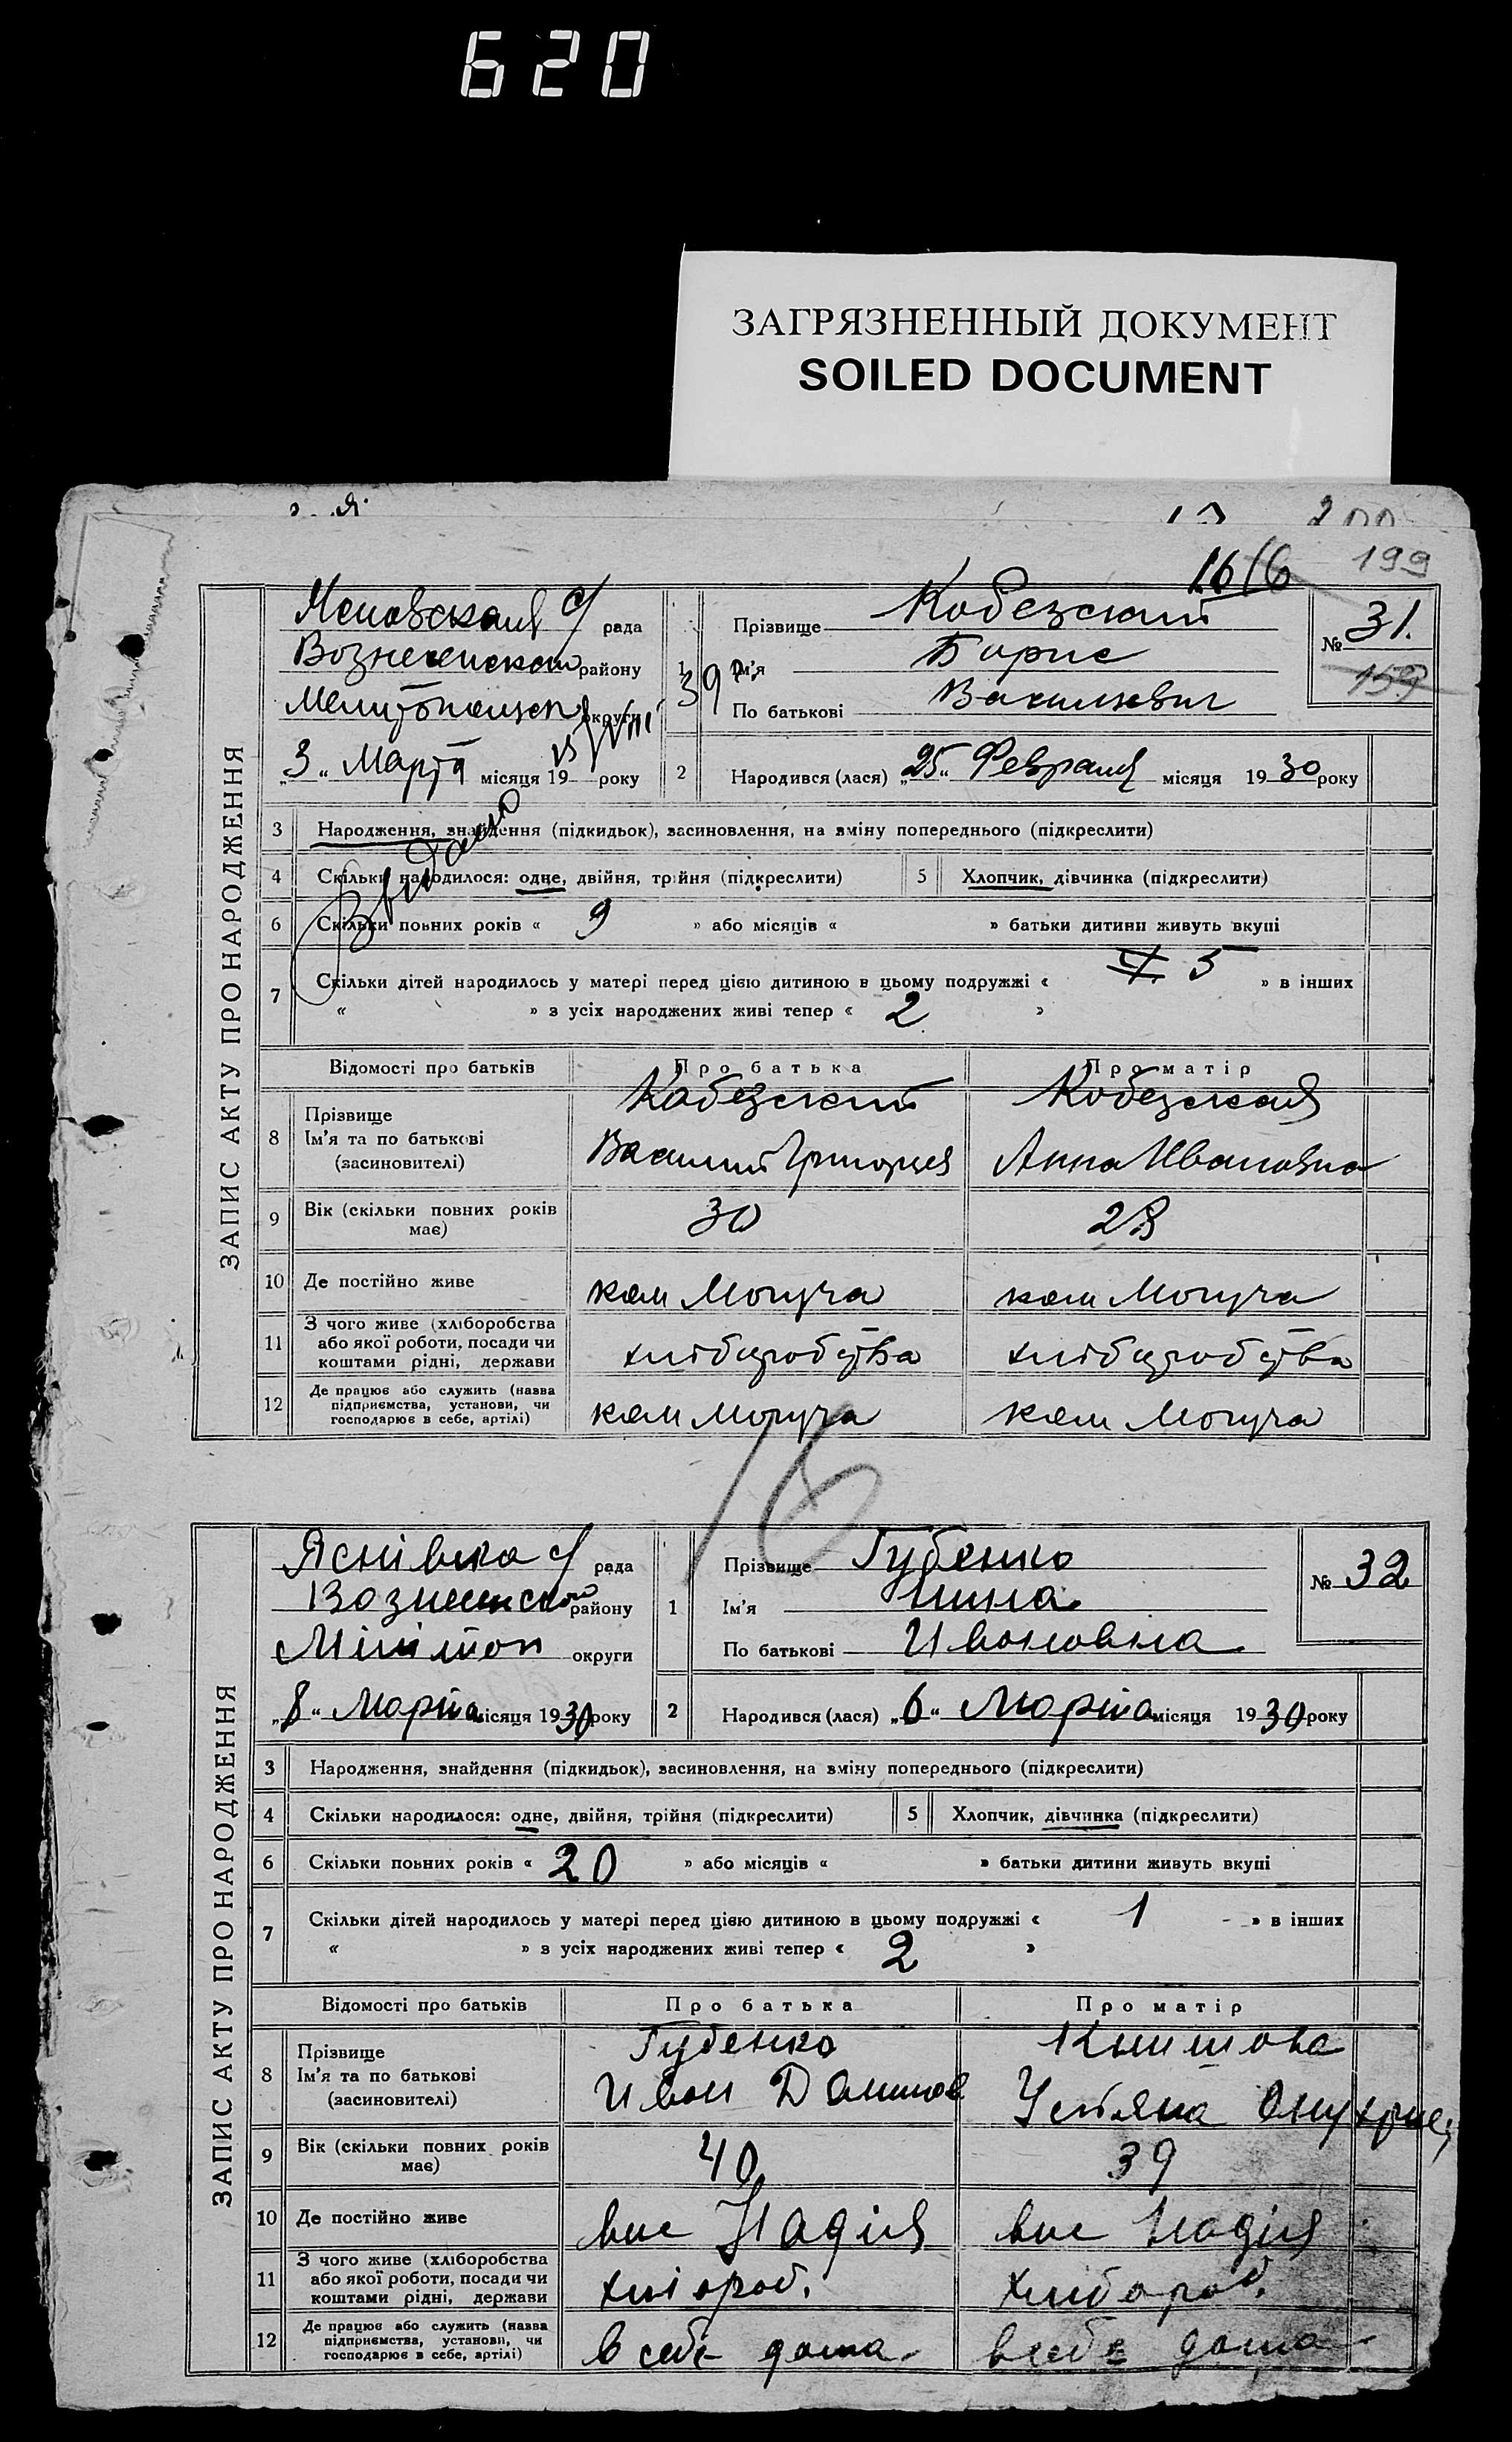 620
ЗАГРЯЗНЕННЫЙ ДОКУМЕНТ
SOILED DOCUMENT
200
199
16 16
ЗАПИС АКТУ ПРО НАРОДЖЕННЯ
с/ рада
району
округи
„3“ Марта місяця 19 року
1
39
Прізвище Кобезский
Ім'я Борис
По батькові Васильевич
№ 31.
159
2 Народився (лася) „25“ Февраля місяця 1930 року
3 Народження, знайдення (підкидьок), засиновлення, на зміну попереднього (підкреслити)
4 Скільки народилося: одне, двійня, трійня (підкреслити) 5 Хлопчик, дівчинка (підкреслити)
6 Скільки повних років « 9 » або місяців « » батьки дитини живуть вкупі
7 Скільки дітей народилось у матері перед цією дитиною в цьому подружжі « 5 » в інших
« » з усіх народжених живі тепер « 2 »
Відомості про батьків Про батька Про матір
8 Прізвище Кобезский Кобезская
Ім'я та по батькові Василий Григорьев Анна Ивановна
(засиновителі)
9 Вік (скільки повних років має) 30 28
10 Де постійно живе ком Могуча ком Могуча
11 З чого живе (хліборобства або якої роботи, посади чи коштами рідні, держави хлібороб‌ства хлібороб‌ства
12 Де працює або служить (назва підприємства, установи, чи господарює в себе, артілі) ком Могуча ком Могуча
16
ЗАПИС АКТУ ПРО НАРОДЖЕННЯ
Яснівка с/ рада
району
Мілітоп округи
„8“ Марта місяця 1930 року
1 Прізвище Губенко
Ім'я Нина
По батькові Ивановна
№ 32
2 Народився (лася) „6“ Марта місяця 1930 року
3 Народження, знайдення (підкидьок), засиновлення, на зміну попереднього (підкреслити)
4 Скільки народилося: одне, двійня, трійня (підкреслити) 5 Хлопчик, дівчинка (підкреслити)
6 Скільки повних років « 20 » або місяців « » батьки дитини живуть вкупі
7 Скільки дітей народилось у матері перед цією дитиною в цьому подружжі « 1 » в інших
« » з усіх народжених живі тепер « 2 »
Відомості про батьків Про батька Про матір
8 Прізвище Губенко
Ім'я та по батькові Иван Данилов
(засиновителі)
9 Вік (скільки повних років має) 40 39
10 Де постійно живе вис Надія вис Надія
11 З чого живе (хліборобства або якої роботи, посади чи коштами рідні, держави хлібороб.
12 Де працює або служить (назва підприємства, установи, чи господарює в себе, артілі) в себе дома в себе дома